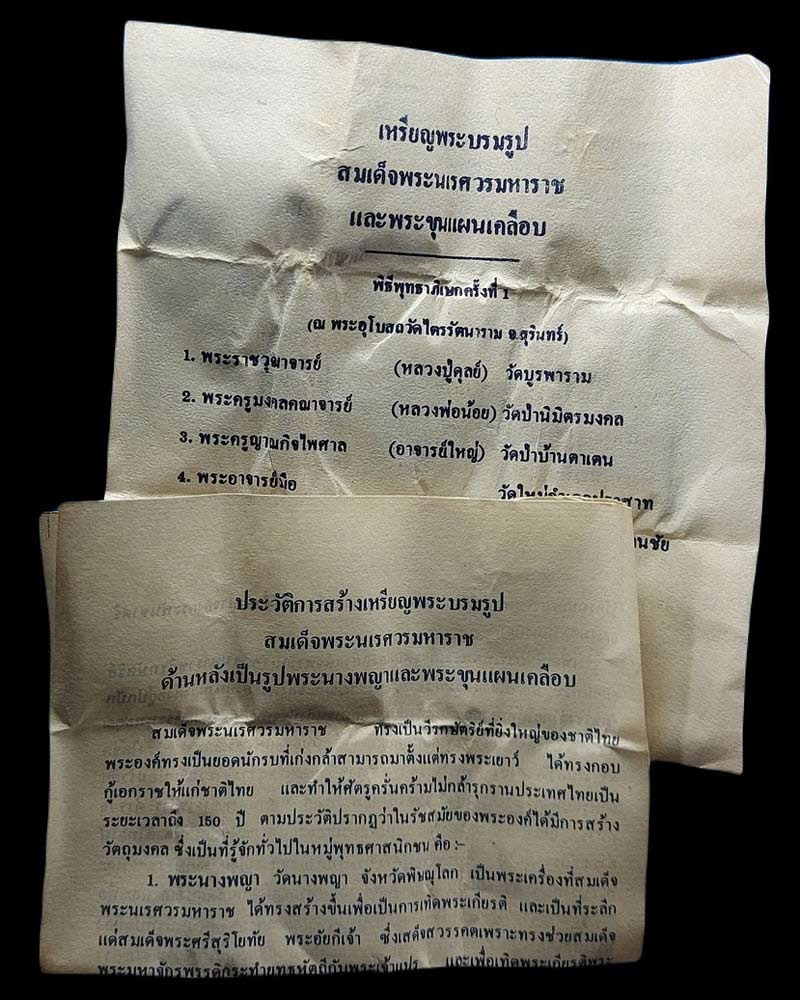 เหรียญพระบรมรูป
สมเด็จพระนเรศวรมหาราช
และพระขุนแผนเคลือบ
พิธีพุทธาภิเษกครั้งที่ 1
(ณ พระอุโบสถวัดไตรรัตนาราม จ.สุรินทร์)
1. พระราชวุฒาจารย์ (หลวงปู่ดุลย์) วัดบูรพาราม
2. พระครูมงคลคณาจารย์ (หลวงพ่อน้อย) วัดป่านิมิตรมงคล
3. พระครูญาณกิจไพศาล (อาจารย์ใหญ่) วัดป่าบ้านตาเตน
4. พระอาจารย์มือ วัดใหม่อำเภอปราสาท
ประวัติการสร้างเหรียญพระบรมรูป
สมเด็จพระนเรศวรมหาราช
ด้านหลังเป็นรูปพระนางพญาและพระขุนแผนเคลือบ
สมเด็จพระนเรศวรมหาราช ทรงเป็นวีรกษัตริย์ที่ยิ่งใหญ่ของชาติไทย
พระองค์ทรงเป็นยอดนักรบที่เก่งกล้าสามารถมาตั้งแต่ทรงพระเยาว์ ได้ทรงกอบ
กู้เอกราชให้แก่ชาติไทย และทำให้ศัตรูครั่นคร้ามไม่กล้ารุกรานประเทศไทยเป็น
ระยะเวลาถึง 150 ปี ตามประวัติปรากฏว่าในรัชสมัยของพระองค์ได้มีการสร้าง
วัตถุมงคล ซึ่งเป็นที่รู้จักทั่วไปในหมู่พุทธศาสนิกชน คือ :-
1. พระนางพญา วัดนางพญา จังหวัดพิษณุโลก เป็นพระเครื่องที่สมเด็จ
พระนเรศวรมหาราช ได้ทรงสร้างขึ้นเพื่อเป็นการเทิดพระเกียรติ และเป็นที่ระลึก
แด่สมเด็จพระศรีสุริโยทัย พระอัยกีเจ้า ซึ่งเสด็จสวรรคตเพราะทรงช่วยสมเด็จ
พระมหาจักรพรรดิกระทำยุทธหัตถีกับพระเจ้าแปร และเพื่อเทิดพระเกียรติพระ